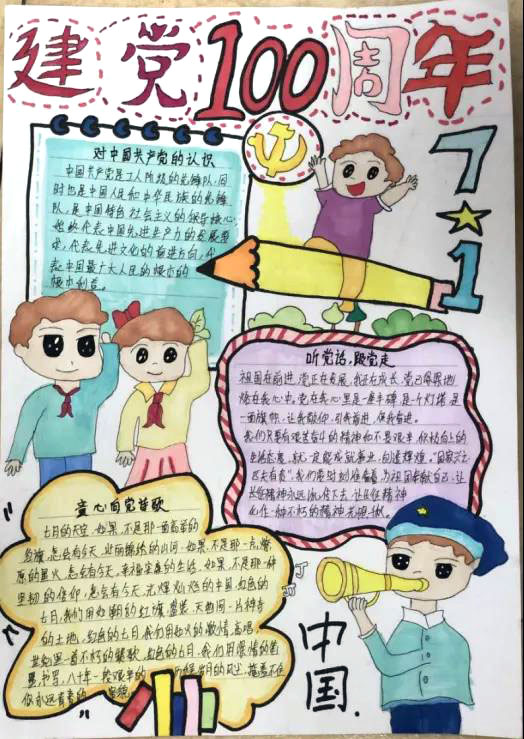 建党100周年
7★1
对中国共产党的认识
中国共产党是工人阶级的先锋队,同
时也是中国人民和中华民族的先锋
队,是中国特色社会主义的领导核心,
始终代表中国先进生产力的发展要
求,代表先进文化的前进方向,代
表中国最广大人民的根本的
根本利益。
听党话,跟党走
祖国在前进,党正在发展,我还在成长,党已深深地
烙在我心中,党在我心里是一座丰碑,是一个灯塔,是
一面旗帜,让我敬仰,引我前进,保我奋进。
我们只要有艰苦奋斗的精神和不畏艰辛,积极向上的
生活态度,就一定能成就事业,创造辉煌。"国家兴亡
匹夫有责",我们要时刻准备着为祖国奉献自己,让
长征精神永远流传下去,让长征精神
化作一种不朽的精神
童心向党赞歌
七月的天空,如果不是那一面高举的
旗,怎会有今天,壮丽锦绣的山河,如果,不是那一点燎
原的星火,怎会有今天,幸福安康的生活,如果,不是那一种
坚韧的信仰,怎会有今天,光辉灿烂的中国,红色的
七月,我们用如潮的红旗,盛装,天地间一片神奇
的土地,红色的七月,我们用如火的激情,高唱,
世纪里一首不朽的赞歌,红色的七月,我们用激情的笔
墨书写,八十年一段艰辛的 岁月的风尘,掩盖不住
你永远青春的
中国.